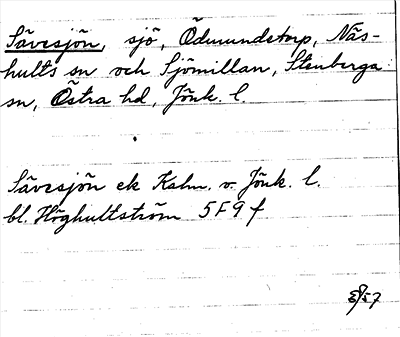 Sävesjön, sjö, Ödmundetorp, Näs-
hults sn och Sjömillan, Stenberga
sn, Östra hd, Jönk. l.
Sävesjön ek Kalm. v. Jönk. l.
bl. Höghultström 5F9f
57